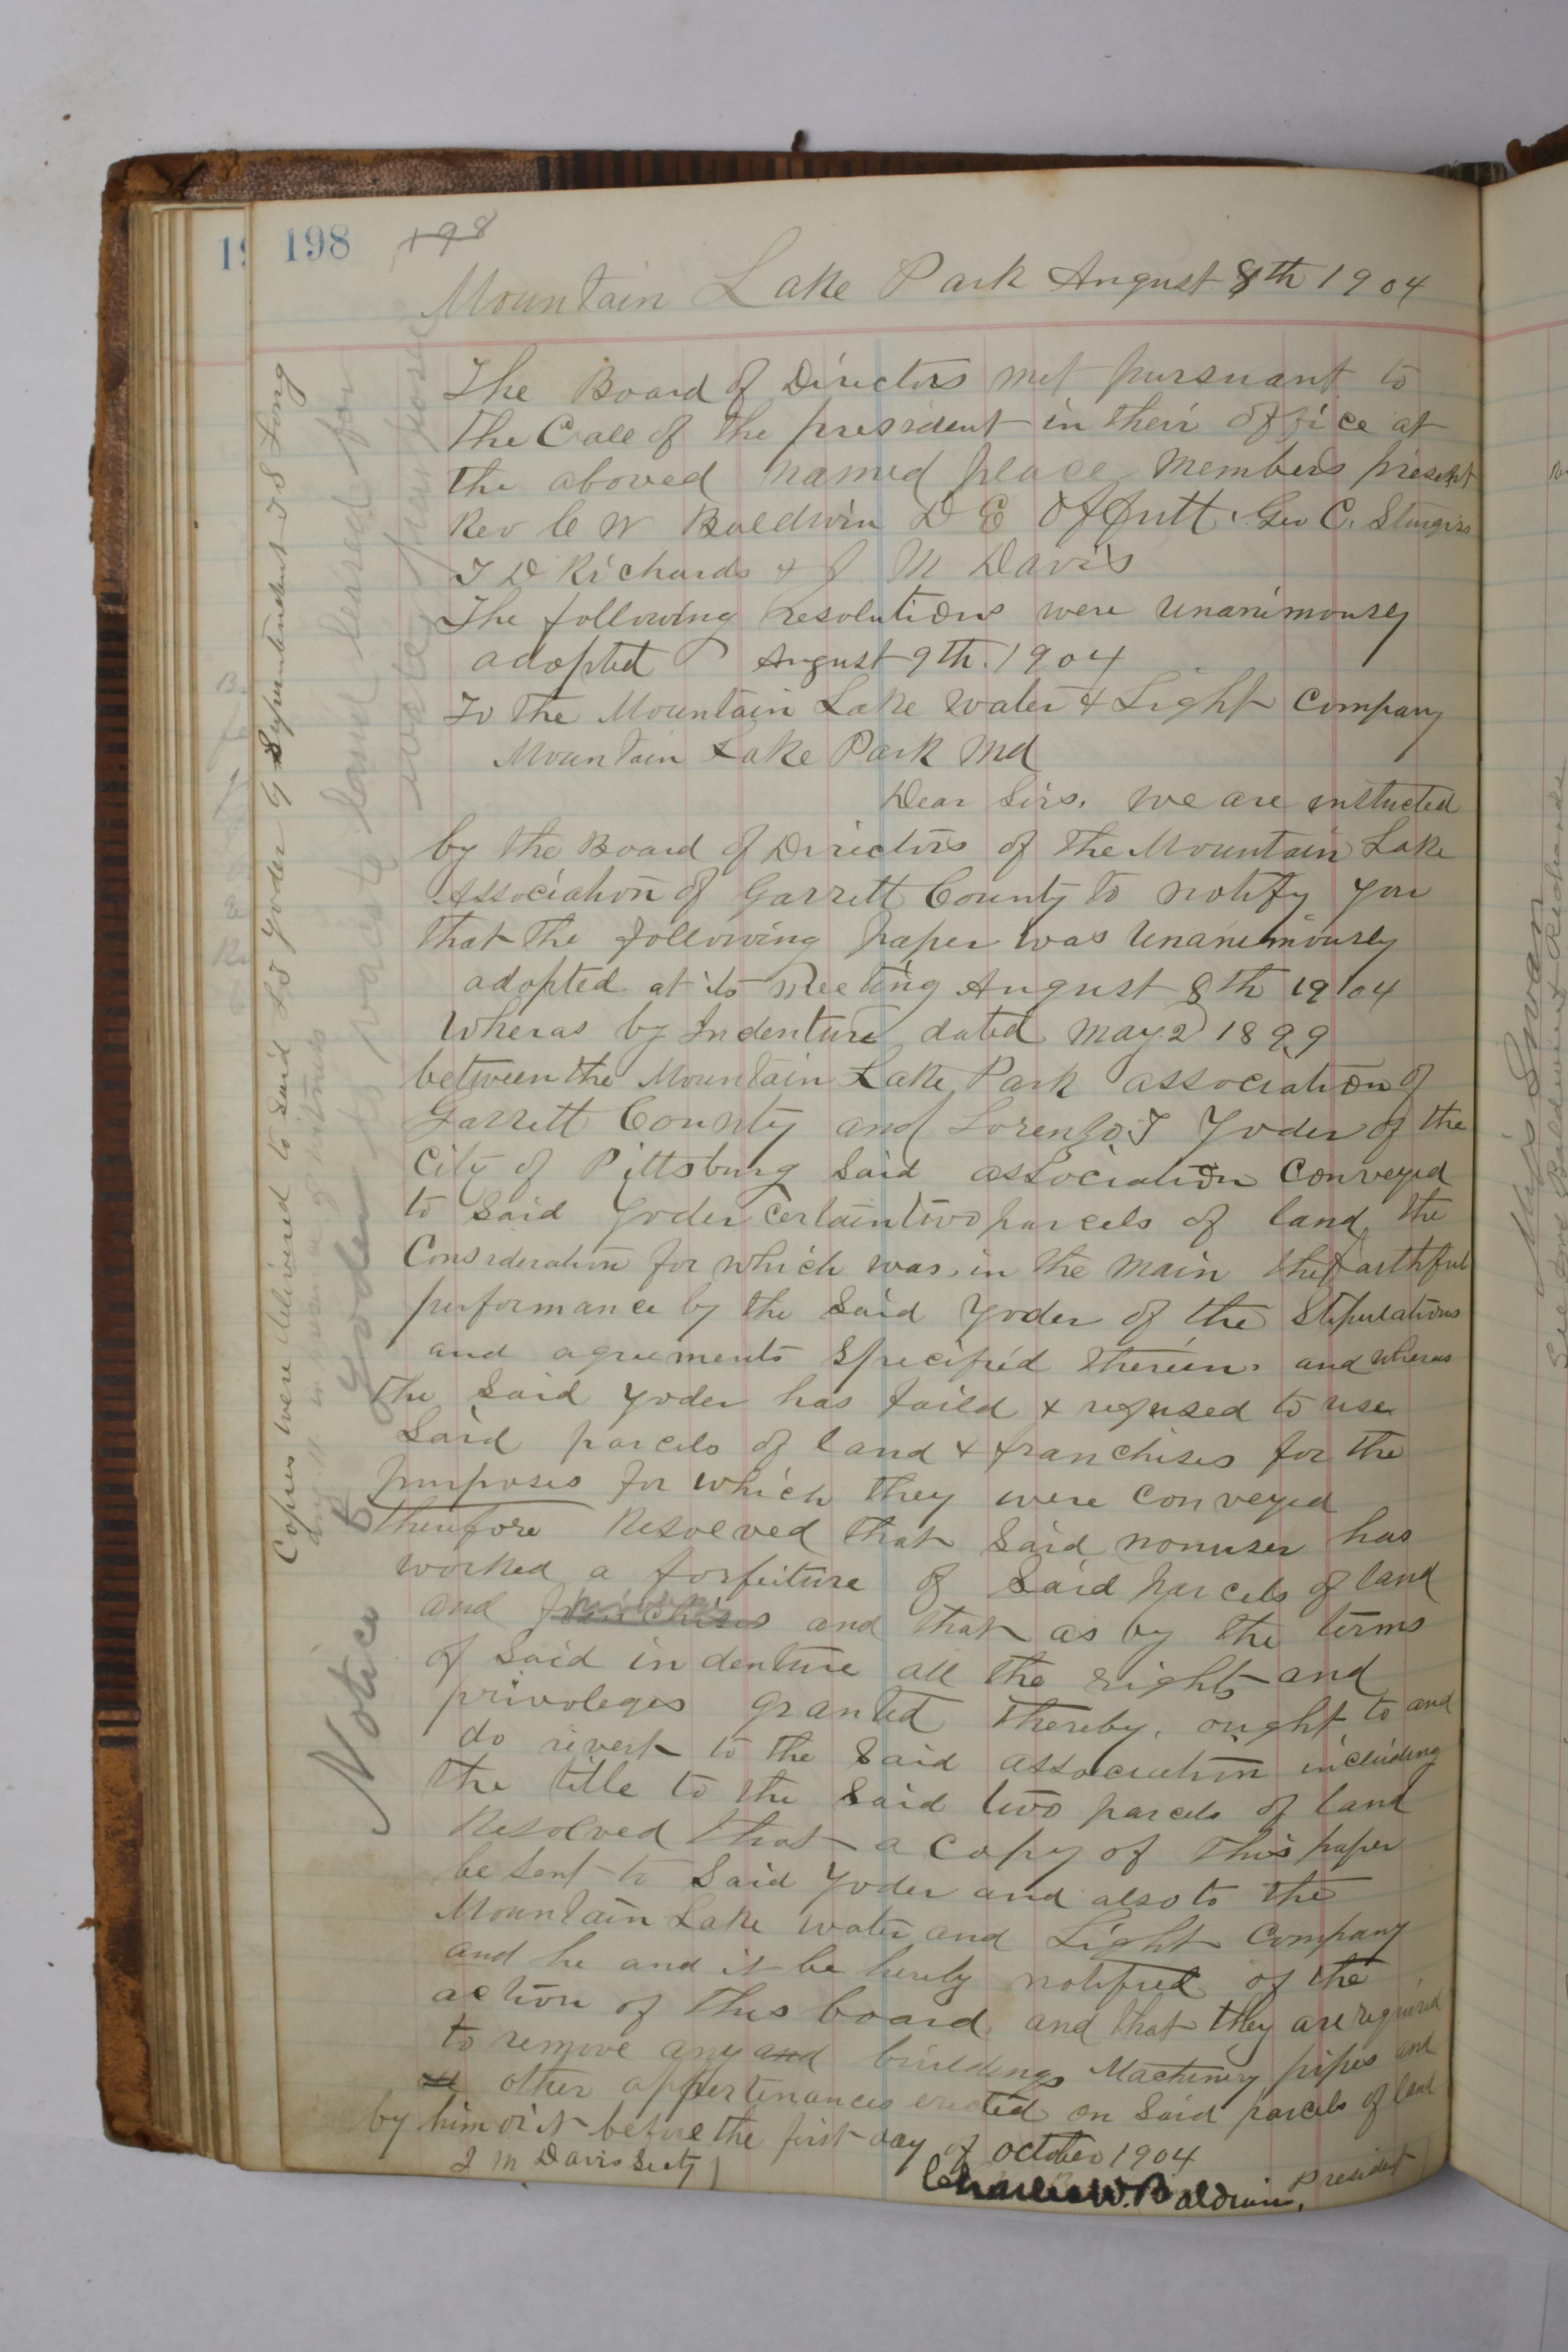 198
198
Mountain Lake Park August 8th 1904
The Board of Directors met pursuant to
the Call of the president in their office at
the aboved named place Members present
Rev C W Baldwin D E Offutt. Geo C. Sturgiss
T D Richards & J M Davis
The following resolutions were unanimously
adopted August 9th. 1904
To the Mountain Lake Water & Light Company
Mountain Lake Park Md
Dear Sirs. We are instucted
by the Board of Directors of the Mountain Lake
Association of Garrett County to notify you
that the following paper was unanimously
adopted at its Meeting August 8th 1904
Wheras by Indenture dated May 2 1899
between the Mountain Lake Park association of
Garrett County and Lorenzo T Yoder of the
City of Pittsburg Said association Conveyed
to Said Yoder certain two parcels of land, the
Consideration for which was, in the main the faithful
performance by the Said Yoder of the Stipulations
and agreements Specified therein. and wheras
the Said Yoder has faild & refused to use
Said parcels of land & franchises for the
purposes for which they were Conveyed
therefore Resolved that Said nonuser has
worked a forfeiture of Said parcels of land
and franchises and that as by the terms
of Said indenture all the rights and
privoleges granted thereby, ought to and
do revert to the Said association including
the title to the Said two parcels of land
Resolved that a Copy of this paper
be sent to Said Yoder and also to the
Mountain Lake water and Light Company
and he and it be hereby notified of the
action of this board, and that they are required
to remove any and buildings Machinery pipes and
other appertinances erected on Said parcels of land
by him or it before the first day of October 1904
J M Davis Secty
Charles W. Baldwin, President
Copies were delivered to said L T Yoder & Supentendent T S Long
in presence of witness
Notice to Yoder to vacate land leased for
water purposes